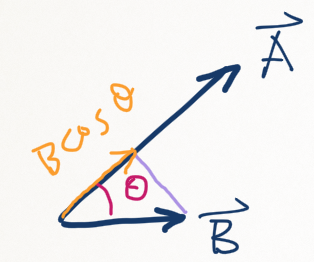 A⃗
B cos θ
θ
B⃗